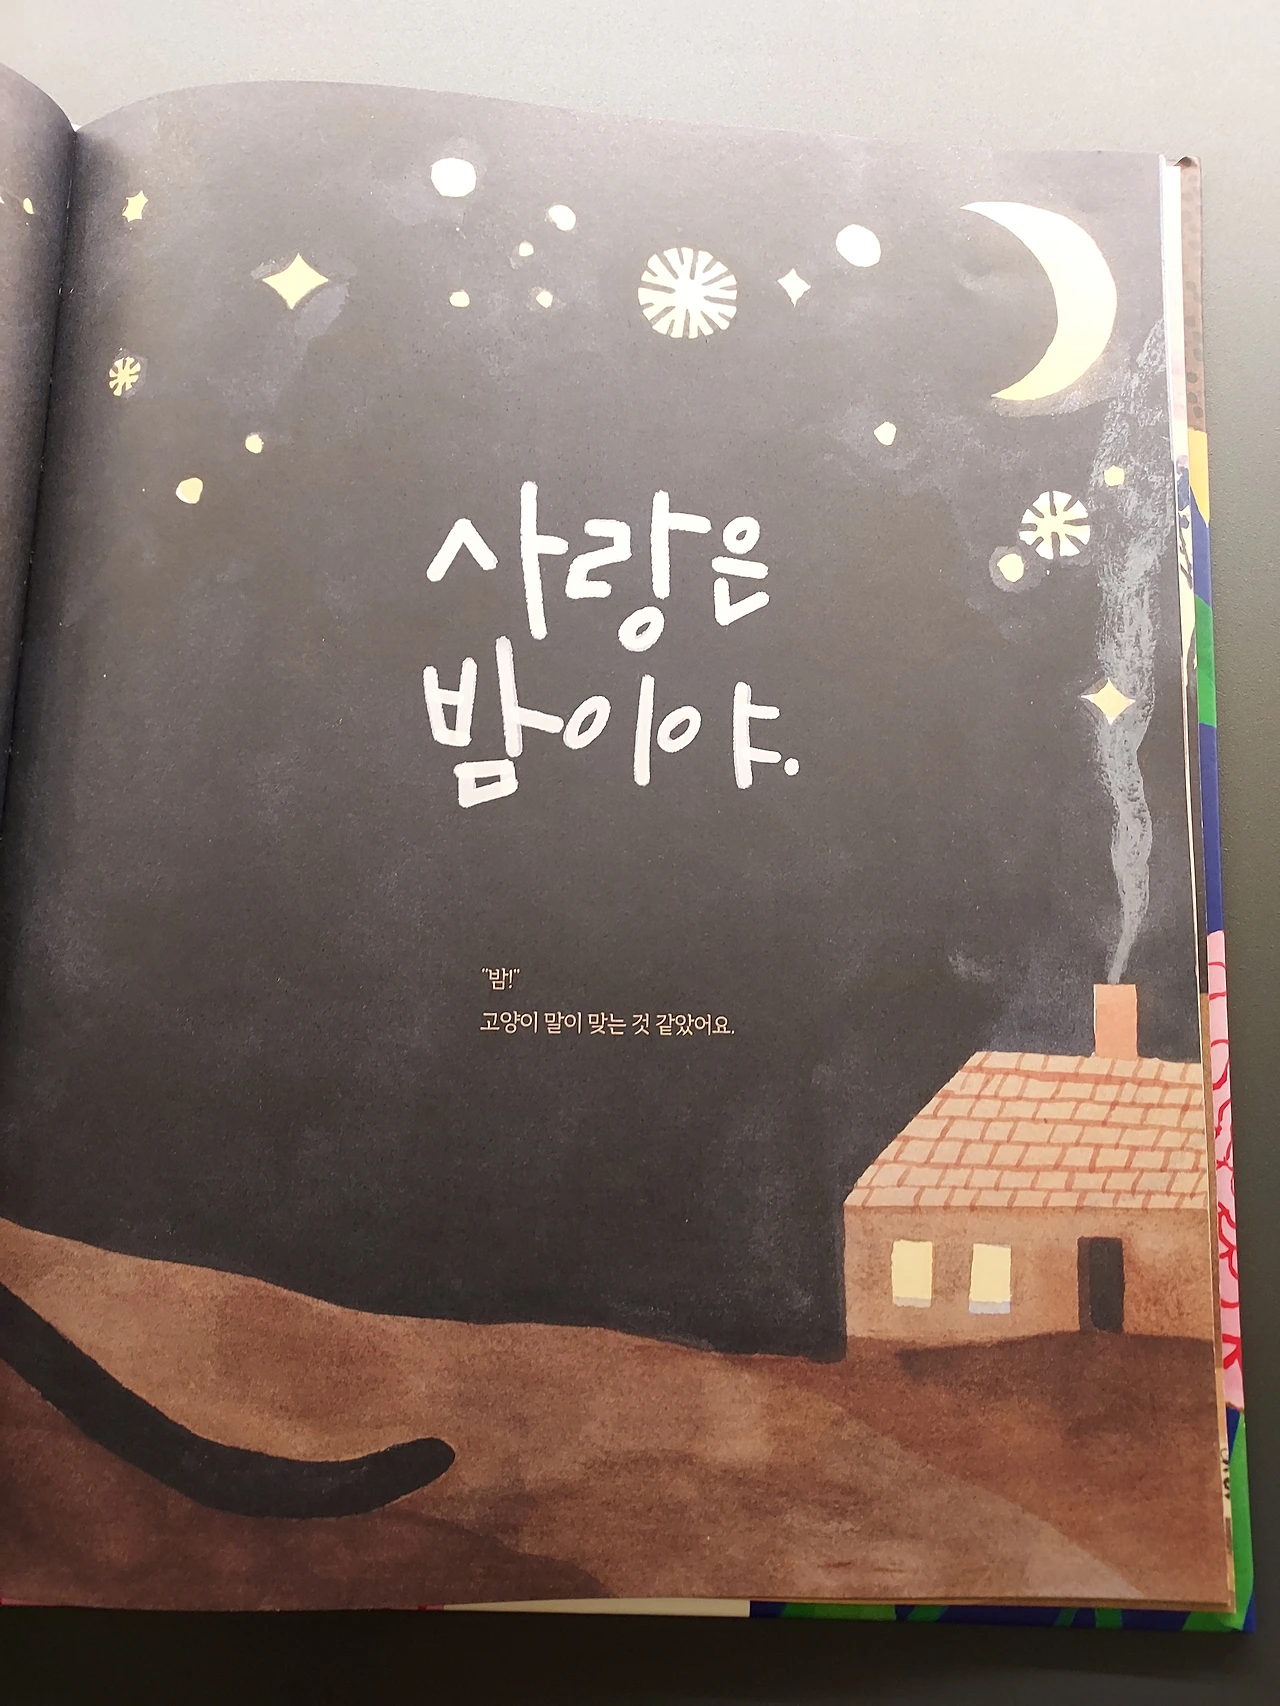 사랑은
밤이야.
"밤!"
고양이 말이 맞는 것 같았어요.